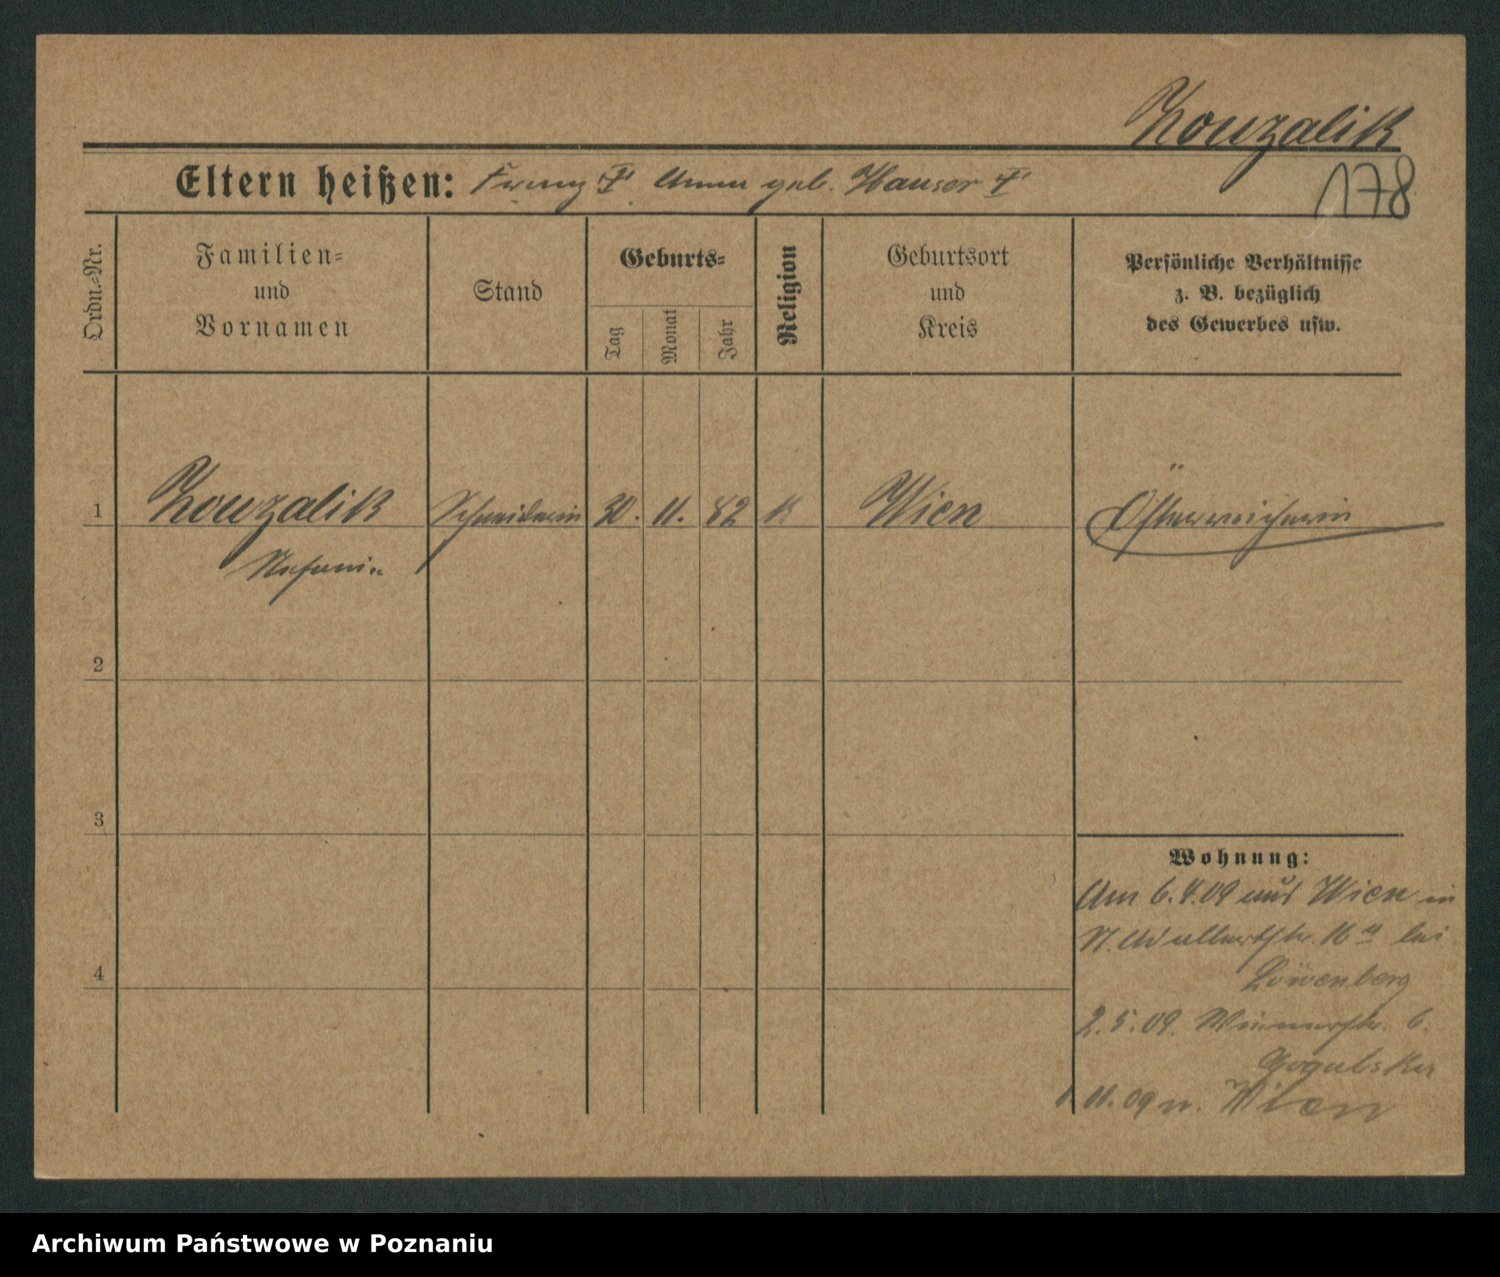 Kouzalik
178
Eltern heißen: Franz † Anna geb. Hauser †
Ordn.-Nr.
Familien-
und
Vornamen
Stand
Geburts-
Tag
Monat
Jahr
Religion
Geburtsort
und
Kreis
Persönliche Verhältnisse
z. B. bezüglich
des Gewerbes usw.
1 Kouzalik Schneiderin 30. 11. 82 K Wien Österreicherin
Stefanie
2
3
4
Wohnung:
Am 6.4.09 aus Wien in
bei
Löwenberg
2.5.09. 6.
11.09 n. Wien
Archiwum Państwowe w Poznaniu